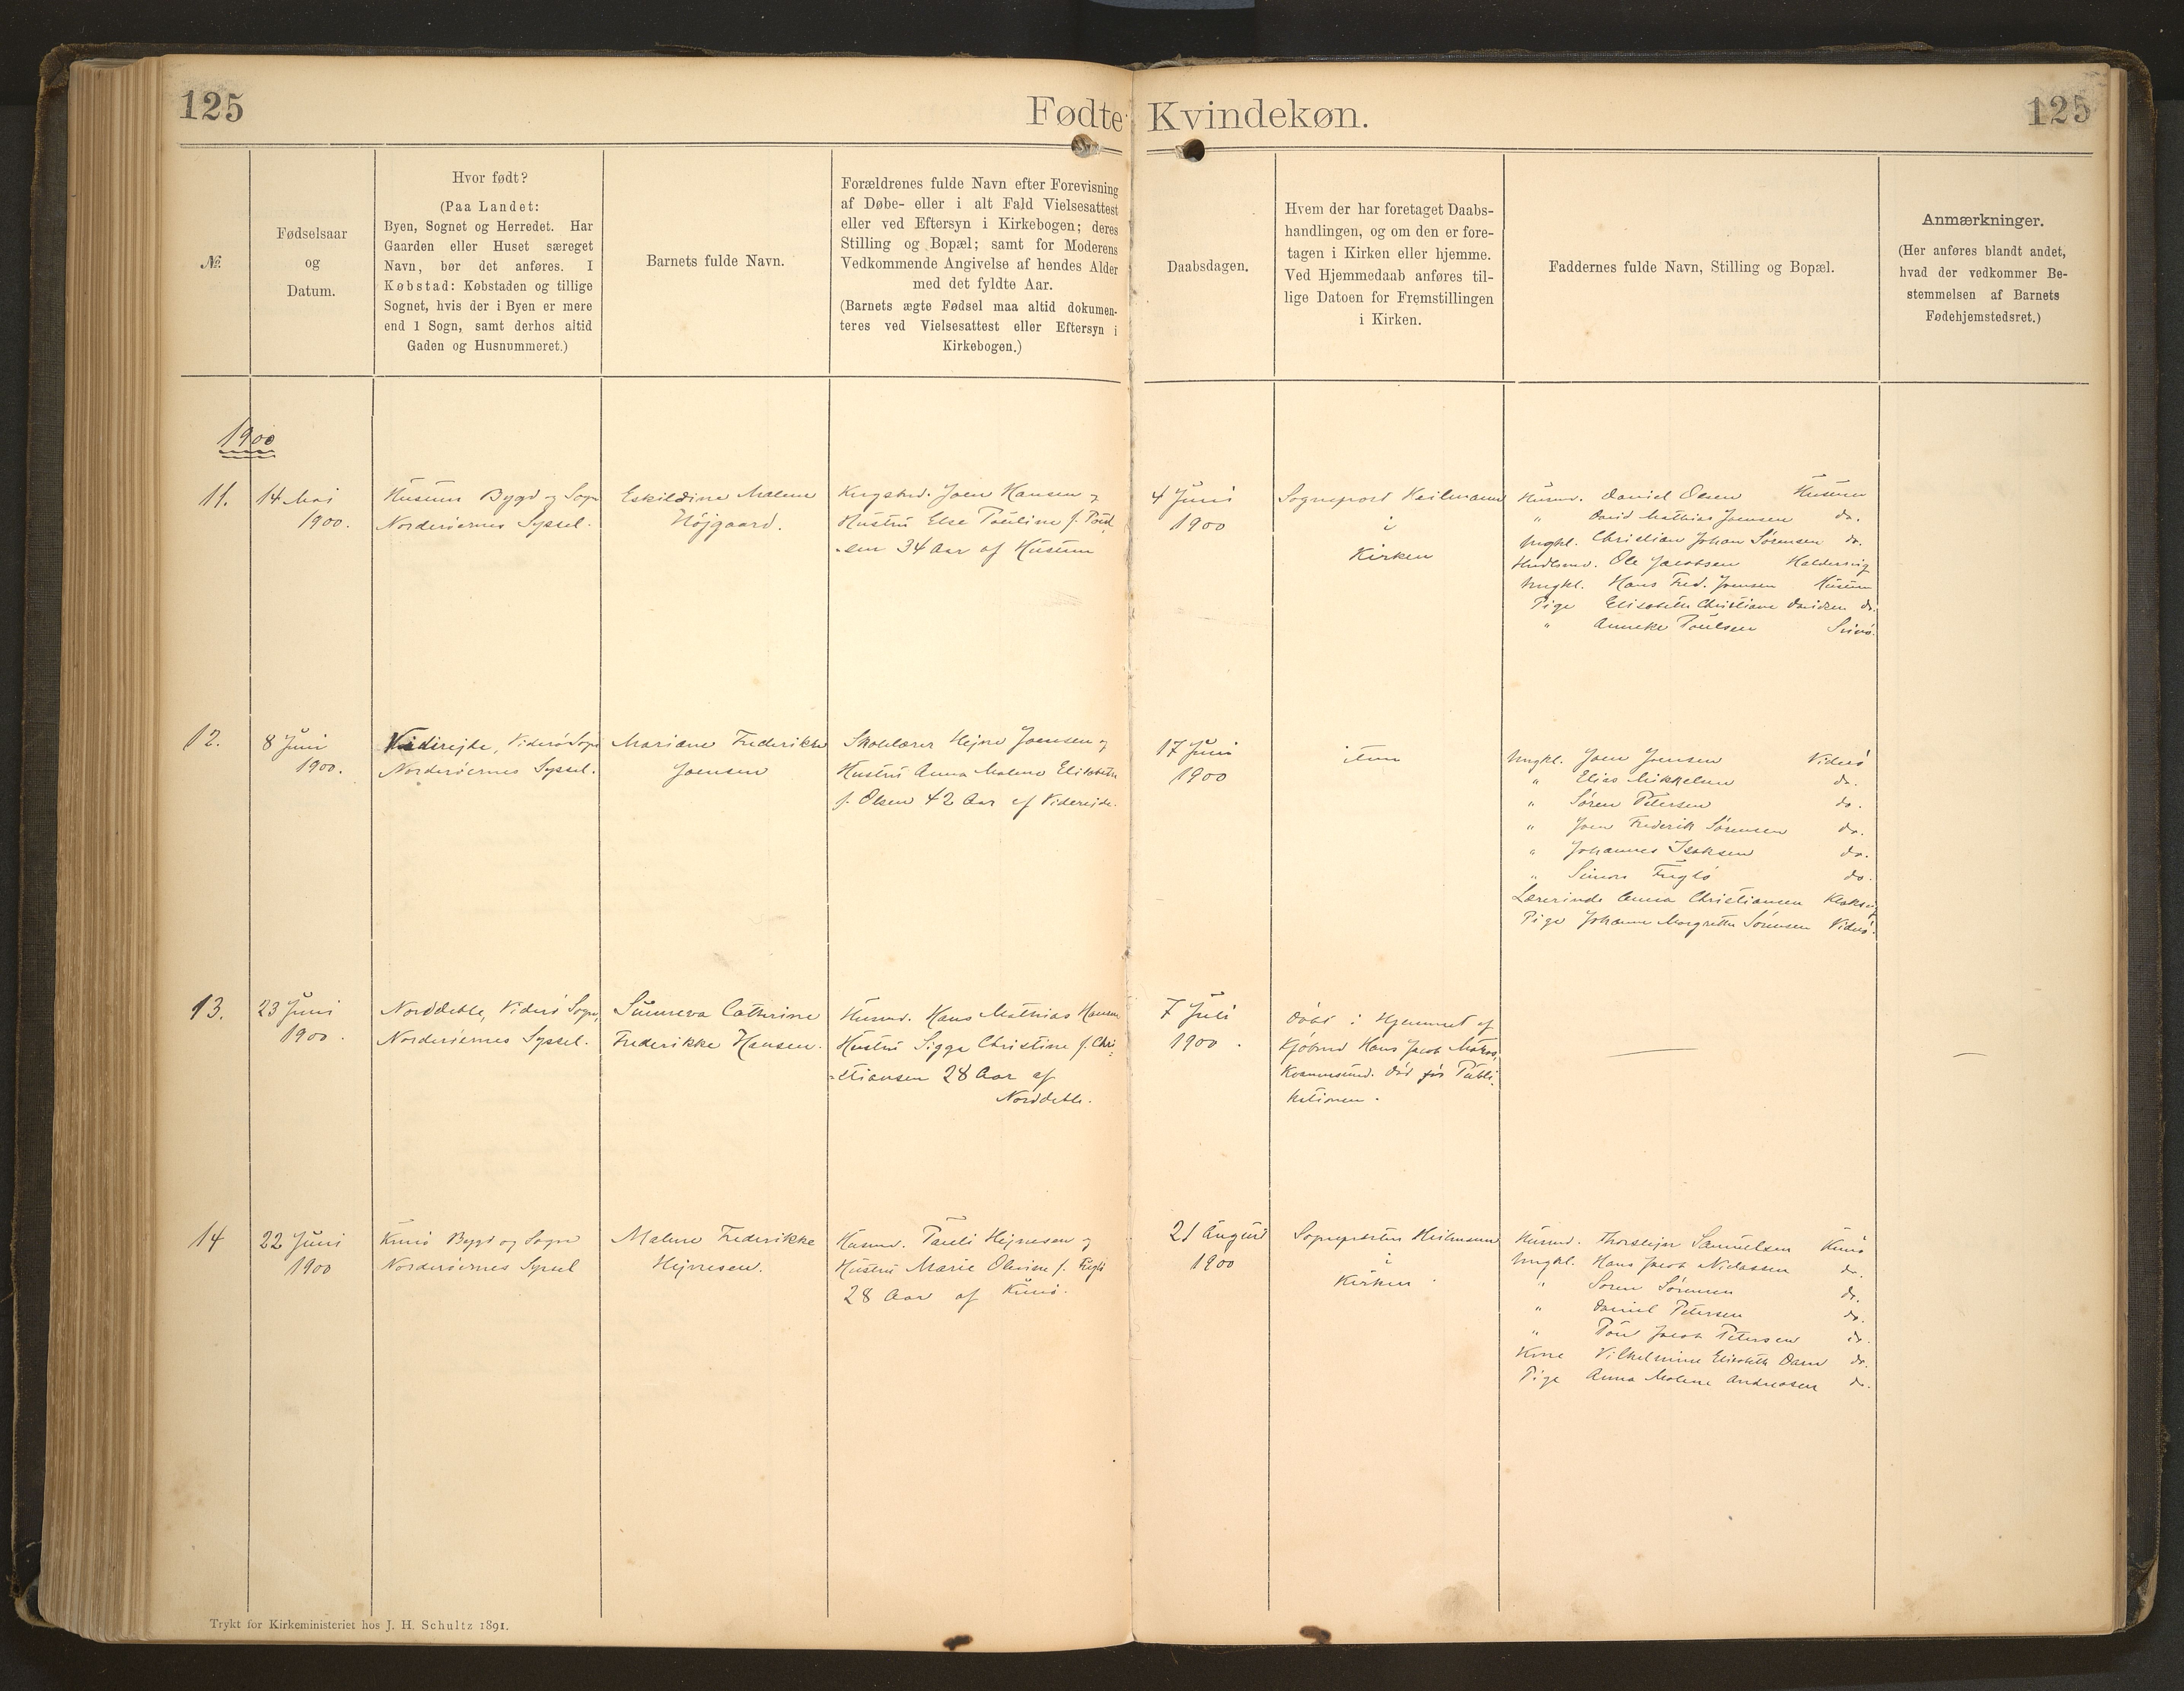 125
Fødte Kvindekøn.
125
№
Fødselsaar
og
Datum.
Hvor født?
(Paa Landet:
Byen, Sognet og Herredet. Har
Gaarden eller Huset særeget
Navn, bør det anføres. I
Købstad: Købstaden og tillige
Sognet, hvis der i Byen er mere
end 1 Sogn, samt derhos altid
Gaden og Husnummeret.)
Barnets fulde Navn.
Forældrenes fulde Navn efter Forevisning
af Døbe- eller i alt Fald Vielsesattest
eller ved Eftersyn i Kirkebogen; deres
Stilling og Bopæl; samt for Moderens
Vedkommende Angivelse af hendes Alder
med det fyldte Aar.
(Barnets ægte Fødsel maa altid dokumen-
teres ved Vielsesattest eller Eftersyn i
Kirkebogen.)
Daabsdagen.
Hvem der har foretaget Daabs-
handlingen, og om den er fore-
tagen i Kirken eller hjemme.
Ved Hjemmedaab anføres til-
lige Datoen for Fremstillingen
i Kirken.
Faddernes fulde Navn, Stilling og Bopæl.
Anmærkninger.
(Her anføres blandt andet,
hvad der vedkommer Be-
stemmelsen af Barnets
Fødehjemstedsret.)
1900
11.
14 Mai
1900.
Husum Bygd og Sogn
Norderöernes Syssel.
Eskildine Malene
Højgaard.
Joen Hansen og
Hustru Else Pauline f. Poul
-sen 34 Aar af Husum
4 Juni
1900
Sognepræst Heilmann
i
Kirken
Husmd. Daniel Olsen Husum
" David Mathias Joensen do.
Ungkl. Christian Johan Sørensen do.
Ole Jacobsen Haldersvig
Ungkl. Hans Fred. Joensen Husum
Pige Elisabeth Christiane Davidsen do.
" Anneke Poulsen
12.
8 Juni
1900.
Viderejde, Viderö Sogn
Norderöernes Syssel.
Mariane Frederikke
Joensen
Skolelærer Hejne Joensen og
Hustru Anna Malene Elisabeth
f. Olsen 42 Aar af Viderejde.
17 Juni
1900
item
Ungkl. Joen Joensen Viderö
" Elias Mikkelsen do.
" Søren Petersen do.
" Joen Frederik Sørensen do.
" Johannes Isaksen do.
" Simon Fuglö do.
Lærerinde Anna Christiansen Klaksvig
Pige Johanne Margrethe Sørensen Viderö.
13.
23 Juni
1900.
Norddeble, Viderö Sogn,
Norderöernes Syssel.
Sunneva Cathrine
Frederikke Hansen.
Husmd. Hans Mathias Hansen
Hustru Sigga Christine f. Chri-
-stiansen 28 Aar af
Norddeble.
7 Juli
1900.
Döbt i Hjemmet af
Kjøbmd Hans Jacob
Kvannesund. Död för Publi-
kationen.
14
22 Juni
1900
Kunö Bygd og Sogn
Norderöernes Syssel
Malene Frederikke
Hejnesen.
Husmd. Pauli Hejnesen og
Hustru Marie Olevine f. Fuglö
28 Aar af Kunö.
21 August
1900
Sognepræsten Heilmann
i
Kirken.
Husmd. Thorstejn Samuelsen Kunö
Ungkl. Hans Jacob Niclassen do.
" Søren Sørensen do.
" Daniel Petersen do.
" Poul Jacob Petersen do.
Kone Vilhelmine Elisabeth Dam do.
Pige Anna Malene Andreasen do.
Trykt for Kirkeministeriet hos J. H. Schultz 1891.